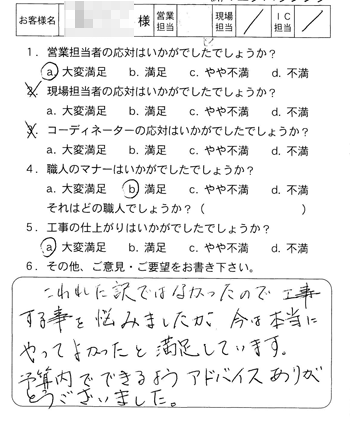 お客様名 様 営業担当 現場担当 ／ ＩＣ担当 ／
１．営業担当者の応対はいかがでしたでしょうか？
a. 大変満足 b. 満足 c. やや不満 d. 不満
２．現場担当者の応対はいかがでしたでしょうか？
a. 大変満足 b. 満足 c. やや不満 d. 不満
３．コーディネーターの応対はいかがでしたでしょうか？
a. 大変満足 b. 満足 c. やや不満 d. 不満
４．職人のマナーはいかがでしたでしょうか？
a. 大変満足 b. 満足 c. やや不満 d. 不満
それはどの職人でしょうか？（ ）
５．工事の仕上がりはいかがでしたでしょうか？
a. 大変満足 b. 満足 c. やや不満 d. 不満
６．その他、ご意見・ご要望をお書き下さい。
こわれた訳ではなかったので 工事
する事を悩みましたが 今は本当に
やってよかったと満足しています。
予算内でできるよう アドバイスありが
とうございました。